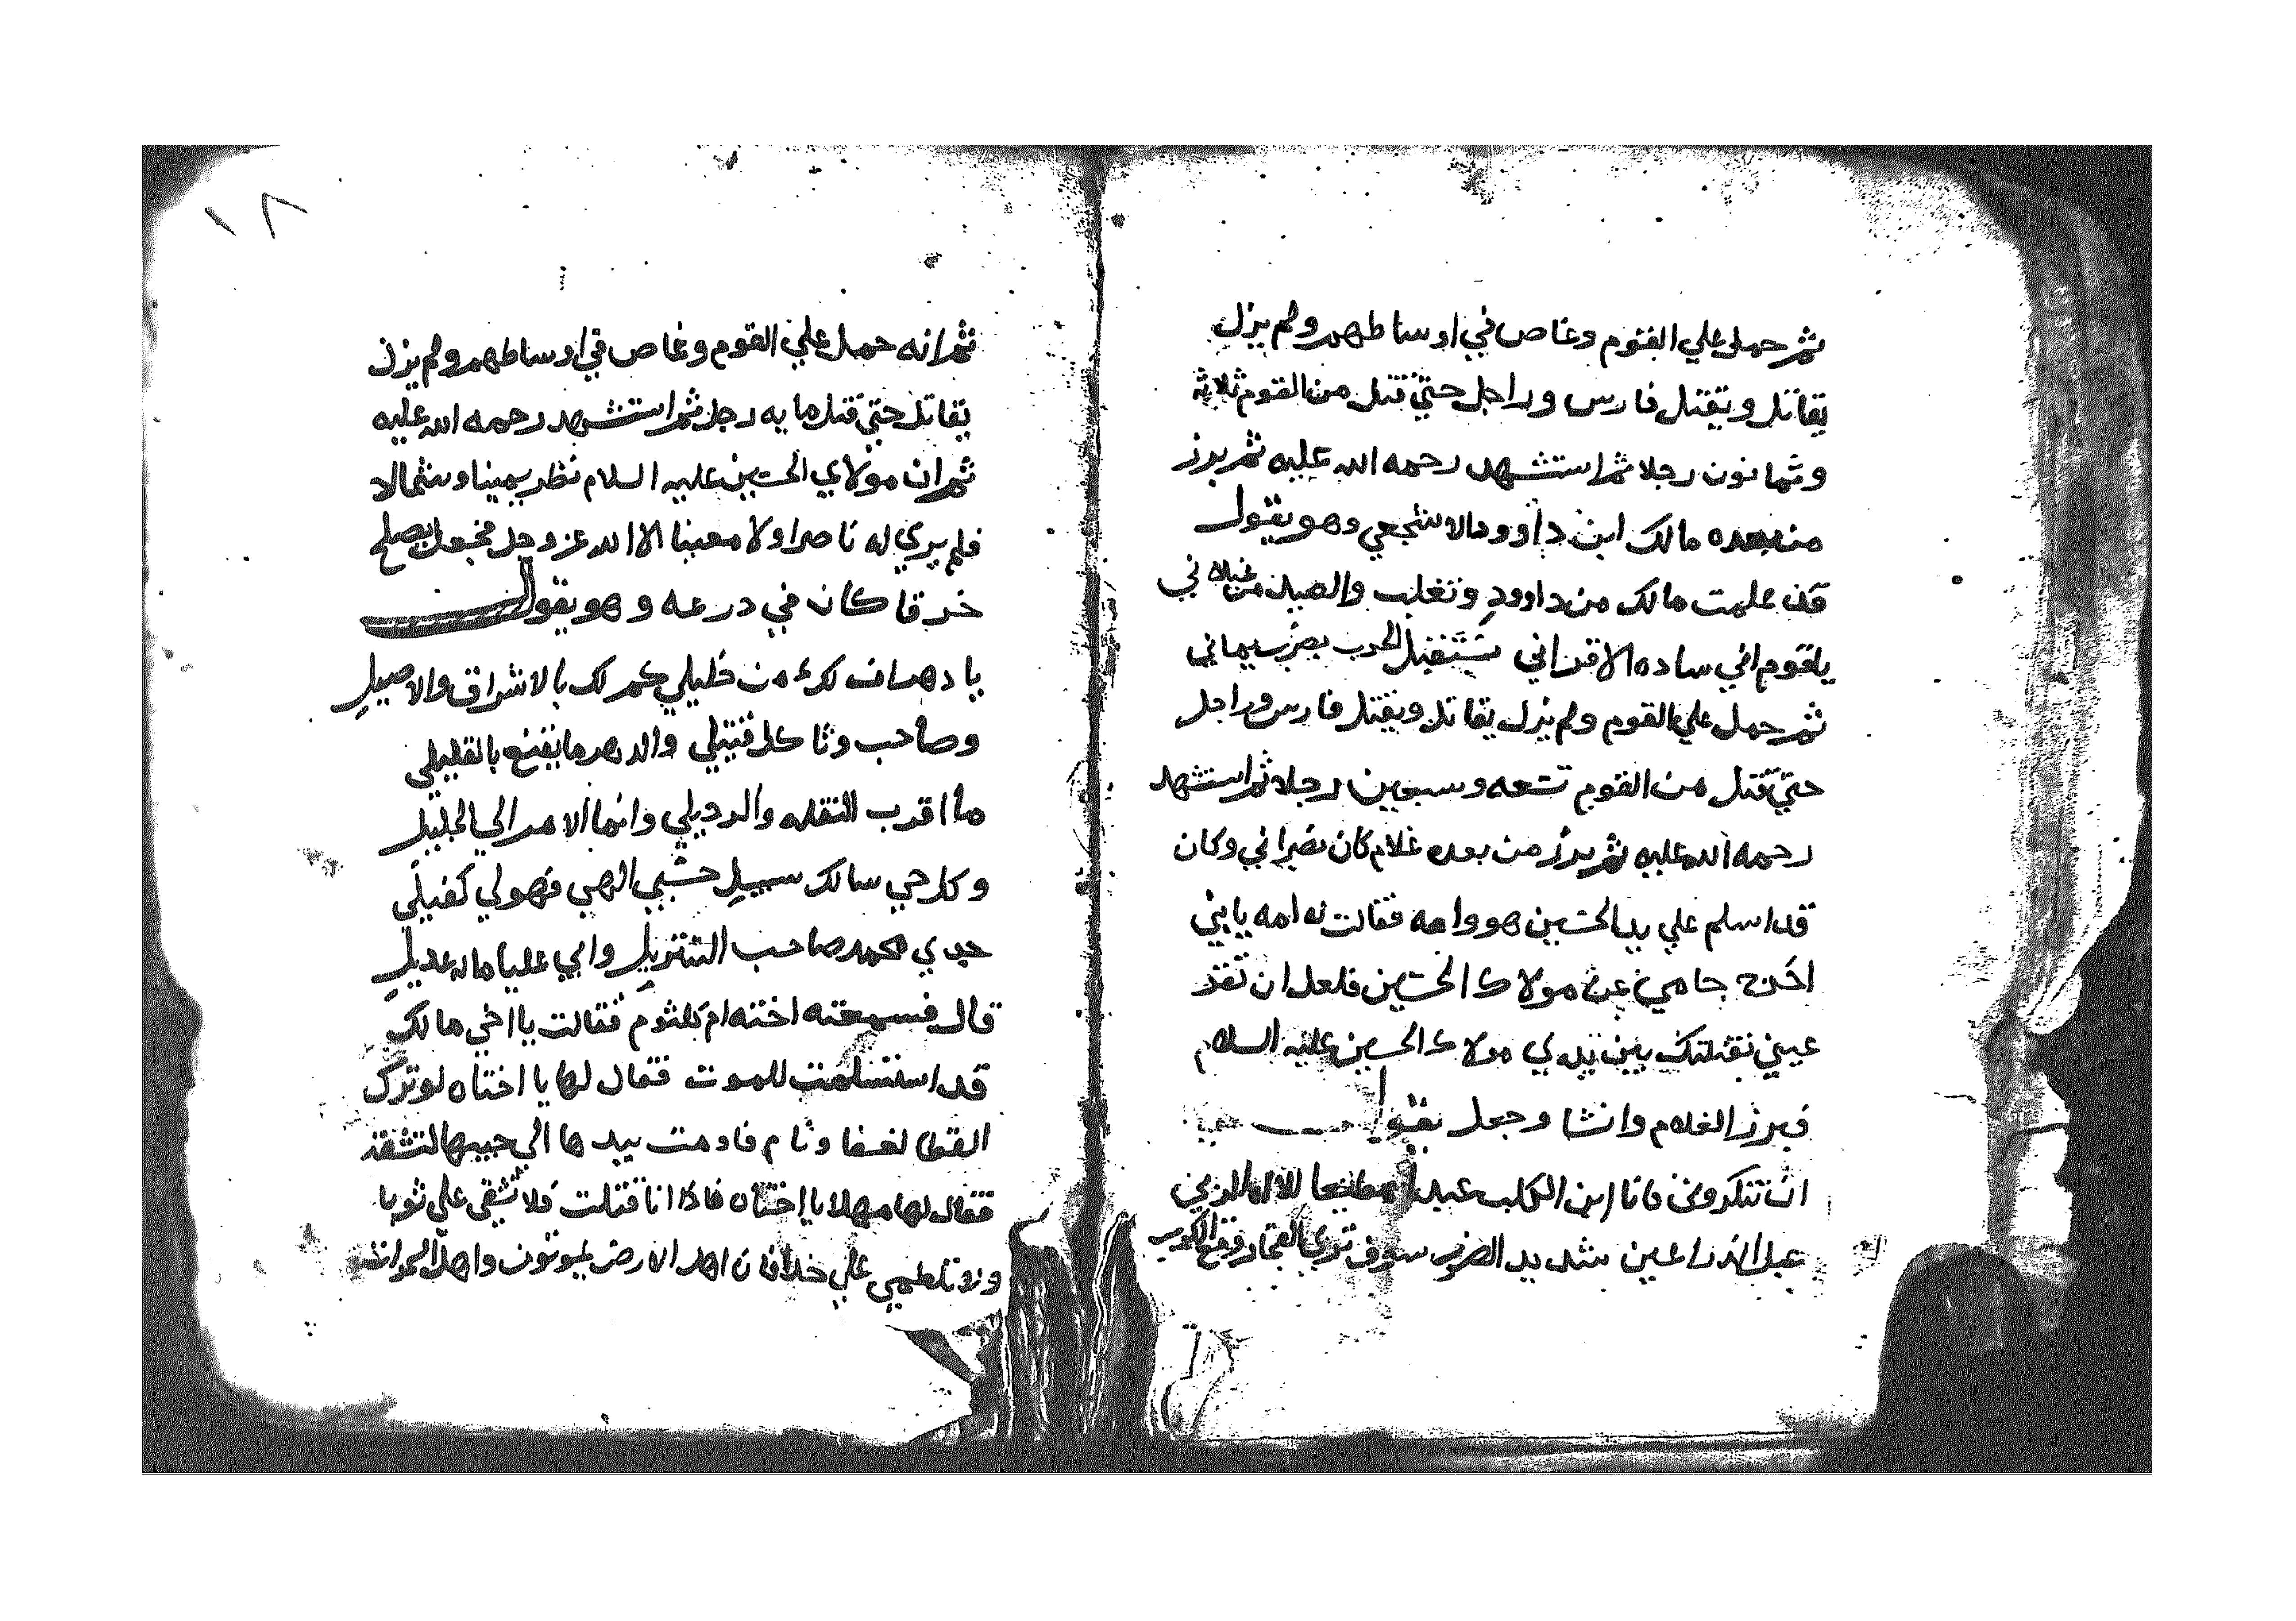 ثم حمل علي القوم وغاص في اوساطهم ولم يزل
يقاتل ويقتل فارس وراجل حتي قتل من القوم ثلاثة
وثمانون رجلا ثم استشهد رحمه الله عليه ثم برز
من بعده مالك ابن داوود الاشجعي وهو يقول
قد علمت مالك من داوود وتغلب والصيد من غيلاني
ياقوم اني ساده الاقراني نستقبل الحرب بضرب يماني
ثم حمل علي القوم ولم يزل يقاتل ويقتل فارس وراجل
حتي قتل من القوم تسعه وسبعين رجلا ثم استشهد
رحمه الله عليه ثم برز من بعده غلام كان نصراني وكان
قد اسلم علي يد الحسين هو وامه فقالت له امه يابني
اخرج حامي عن مولاك الحسين فلعل ان تقر
عيني بقتلتك بين يدي مولاك الحسين عليه السلام
فبرز الغلام وانشا وجعل يقول
ان تنكروني فانا ابن الكلب مطيعا للاله
عبل الذراعين شديد الضرب سوف تري الفجار وقع
١٨
ثم انه حمل علي القوم وغاص في اوساطهم ولم يزل
يقاتل حتي قتل مايه رجل ثم استشهد رحمه الله عليه
ثم ان مولاي الحسين عليه السلام نظر يمينا وشمالا
فلم يري له ناصرا ولا معينا الا الله عز وجل فجعل يصلح
خرقا كان في درعه وهو يقول
يا دهر اف لك من خليلي كم لك بالاشراق والاصيل
وصاحب وثاكل قتيلي والدهر ما يقنع بالقليلي
ما اقرب النقله والرحيلي وانما الامر الي الجليل
وكل حي سالك سبيل حسبي الهي فهو لي كفيلي
جدي محمد صاحب التنزيل وابي عليا ماله عديل
قال فسمعته اخته ام كلثوم فقالت يا اخي مالك
قد استسلمت للموت فقال لها يا اختاه لو ترك
القطا لغفا ونام فاومت بيدها الي جيبها لتشقه
فقال لها مهلا يا اختاه فاذا انا قتلت فلا تشقي علي ثوبا
ولا تلطمي علي خدا فان اهل الارض يموتون واهل السموات